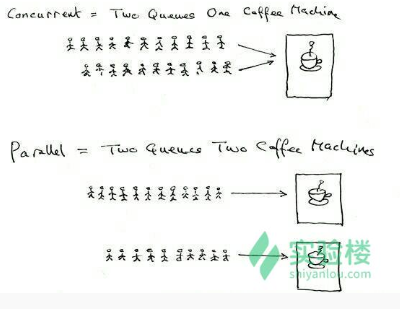 Concurrent = Two Queues One Coffee Machine
Parallel = Two Queues Two Coffee Machines
实验楼
shiyanlou.com